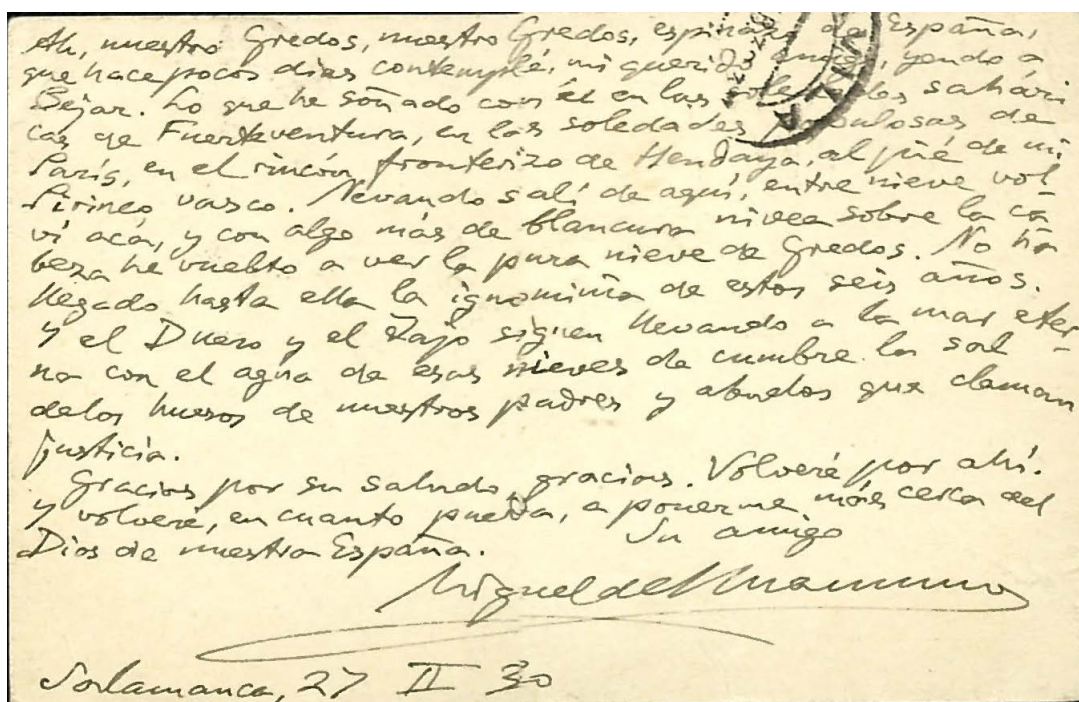 Ah, nuestro Gredos, nuestro Gredos, espinazo de España,
que hace pocos días contemplé, mi querido amigo, yendo a
Béjar. Lo que he soñado con él en las soledades sahári
cas de Fuerteventura, en las soledades populosas de
París, en el rincón fronterizo de Hendaya, al pié de mi
Pirineo vasco. Nevando salí de aquí, entre nieve vol
ví acá, y con algo más de blancura nivea sobre la ca
beza he vuelto a ver la pura nieve de Gredos. No ha
llegado hasta ella la ignominia de estos seis años.
Y el Duero y el Tajo siguen llevando a la mar eter-
na con el agua de esas nieves de cumbre la sal
de los huesos de nuestros padres y abuelos que claman
justicia.
Gracias por su saludo, gracias. Volveré por ahí.
y volveré, en cuanto pueda, a ponerme más cerca del
Dios de nuestra España.
Su amigo
Miguel de Unamuno
Salamanca, 27 II 30